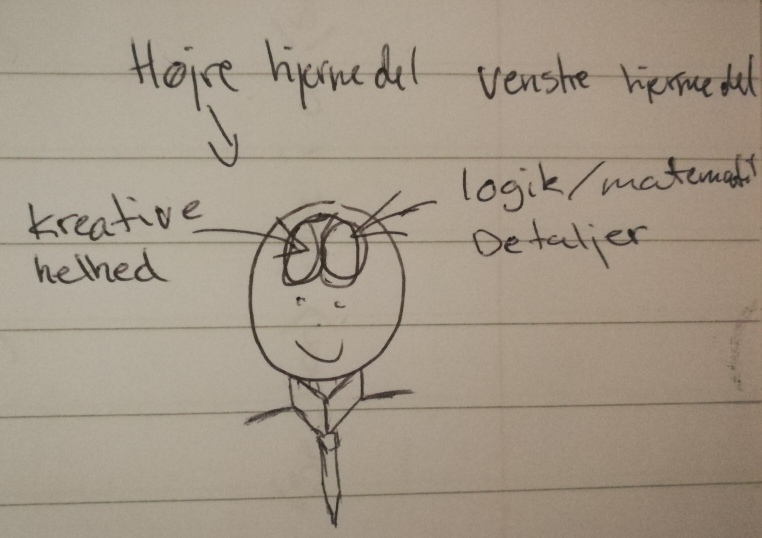 Højre hjernedel venstre hjernedel
kreative
helhed
logik/matematik
Detaljer